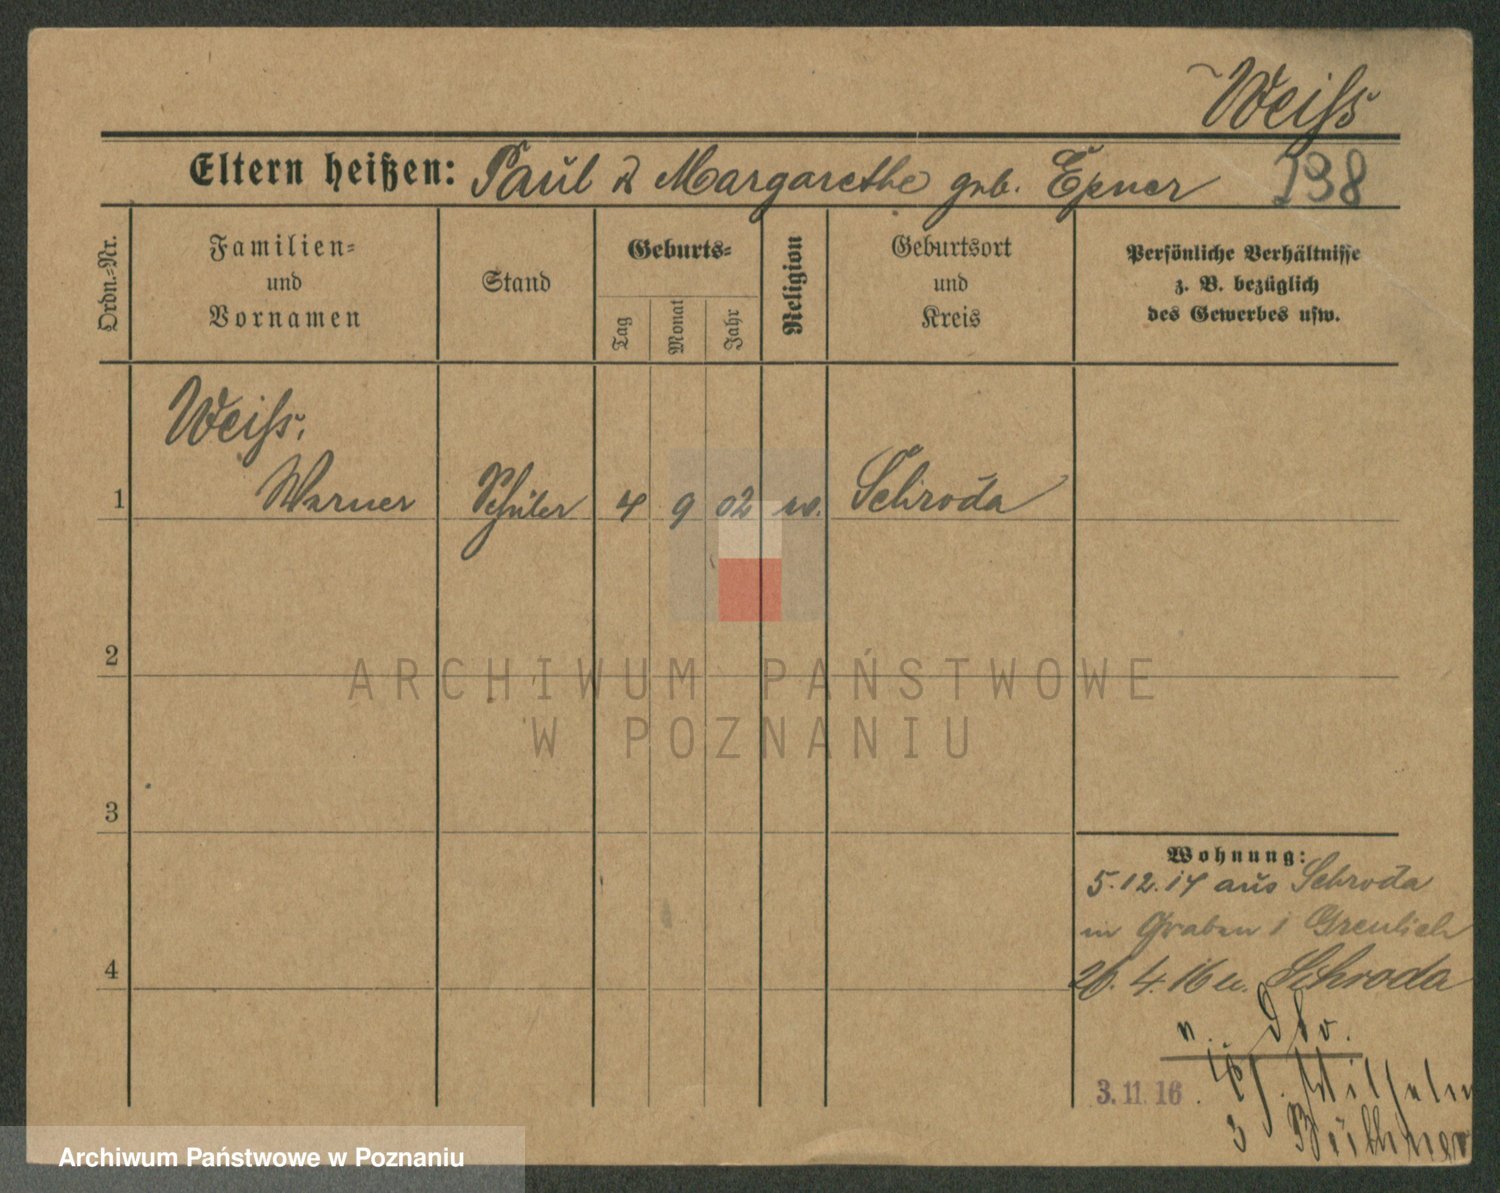 Weiss
Eltern heißen: Paul & Margarethe geb. Epner 138
Ordn.-Nr.
Familien-
und
Vornamen
Stand
Geburts-
Tag
Monat
Jahr
Religion
Geburtsort
und
Kreis
Persönliche Verhältnisse
z. B. bezüglich
des Gewerbes usw.
Weiss,
1 Werner Schüler 4 9 02 Schroda
2
3
4
Wohnung:
5.12.14 aus Schroda
in Graben Greulich
26.4.16 Schroda
3.11.16. Wilhelm
3 Büttner
ARCHIWUM PAŃSTWOWE
W POZNANIU
Archiwum Państwowe w Poznaniu